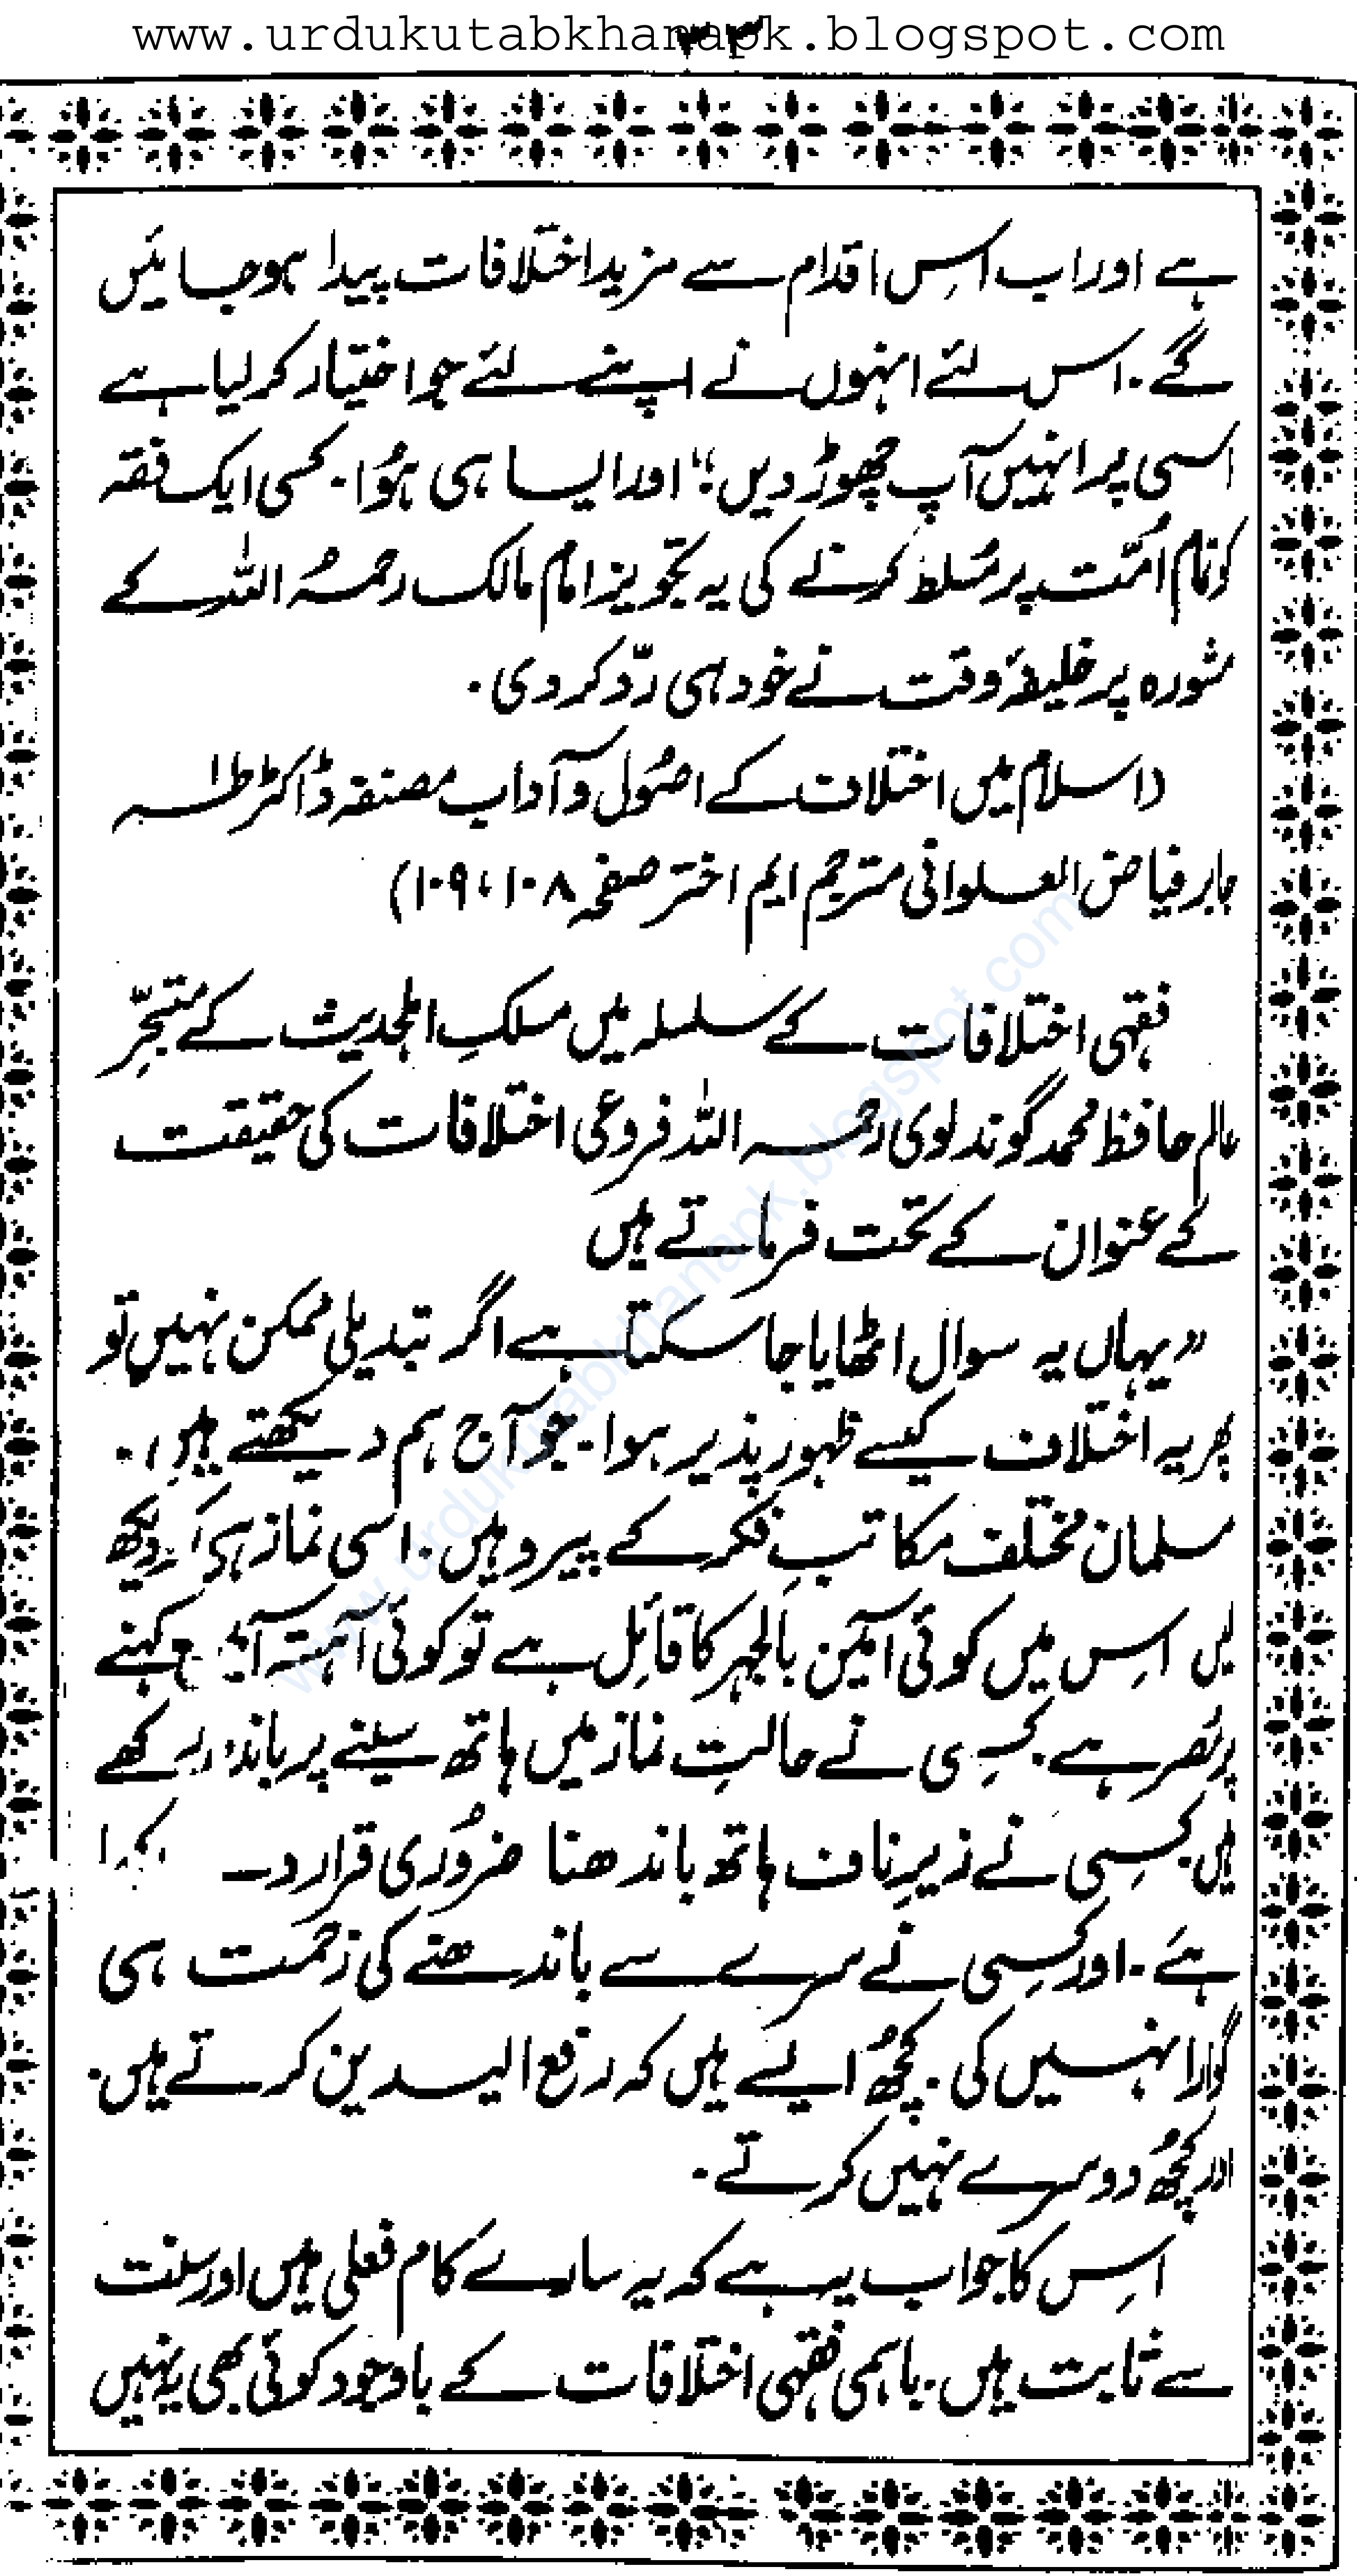 www.urdukutabkhanapk.blogspot.com
۳۳
ہے اور اب اس اقدام سے مزید اختلافات پیدا ہوجائیں
گے۔ اس لئے انہوں نے اپنے لئے جو اختیار کرلیا ہے
اسی پر انہیں آپ چھوڑ دیں؛" اور ایسا ہی ہُوا۔ کسی ایک فقہ
کو تمام اُمّت پر مُسلط کرنے کی یہ تجویز امام مالک رحمہُ اللہ کے
مشورہ پر خلیفۂ وقت نے خود ہی ردّ کردی۔
(اسلام میں اختلاف کے اصُول و آداب مصنفہ ڈاکٹر طٰہٰ
جابر فیاض العلوانی مترجم ایم اختر صفحہ ۱۰۸، ۱۰۹)
فقہی اختلافات کے سلسلہ میں مسلکِ اہلحدیث کے متبحّر
عالم حافظ محمد گوندلوی رحمہ اللہ فروعی اختلافات کی حقیقت
کے عنوان کے تحت فرماتے ہیں
"یہاں یہ سوال اٹھایا جاسکتا ہے اگر تبدیلی ممکن نہیں تو
پھر یہ اختلاف کیسے ظہور پذیر ہوا۔ جو آج ہم دیکھتے ہیں۔
مسلمان مختلف مکاتبِ فکر کے پیرو ہیں۔ اسی نماز ہی کو دیکھ
لیں اس میں کوئی آمین بالجہر کا قائل ہے تو کوئی آہستہ کہنے
پر مُصر ہے۔ کسی نے حالتِ نماز میں ہاتھ سینے پر باندھ رکھے
ہیں۔ کسی نے زیرِ ناف ہاتھ باندھنا ضرُوری قرار
ہے۔ اور کسی نے سرے سے باندھنے کی زحمت ہی
گوارا نہیں کی۔ کچھ ایسے ہیں کہ رفع الیدین کرتے ہیں۔
اور کچھُ دوسرے نہیں کرتے۔
اس کا جواب یہ ہے کہ یہ سارے کام فعلی ہیں اور سنت
سے ثابت ہیں۔ باہمی فقہی اختلافات کے باوجود کوئی بھی یہ نہیں
www.urdukutabkhanapk.blogspot.com